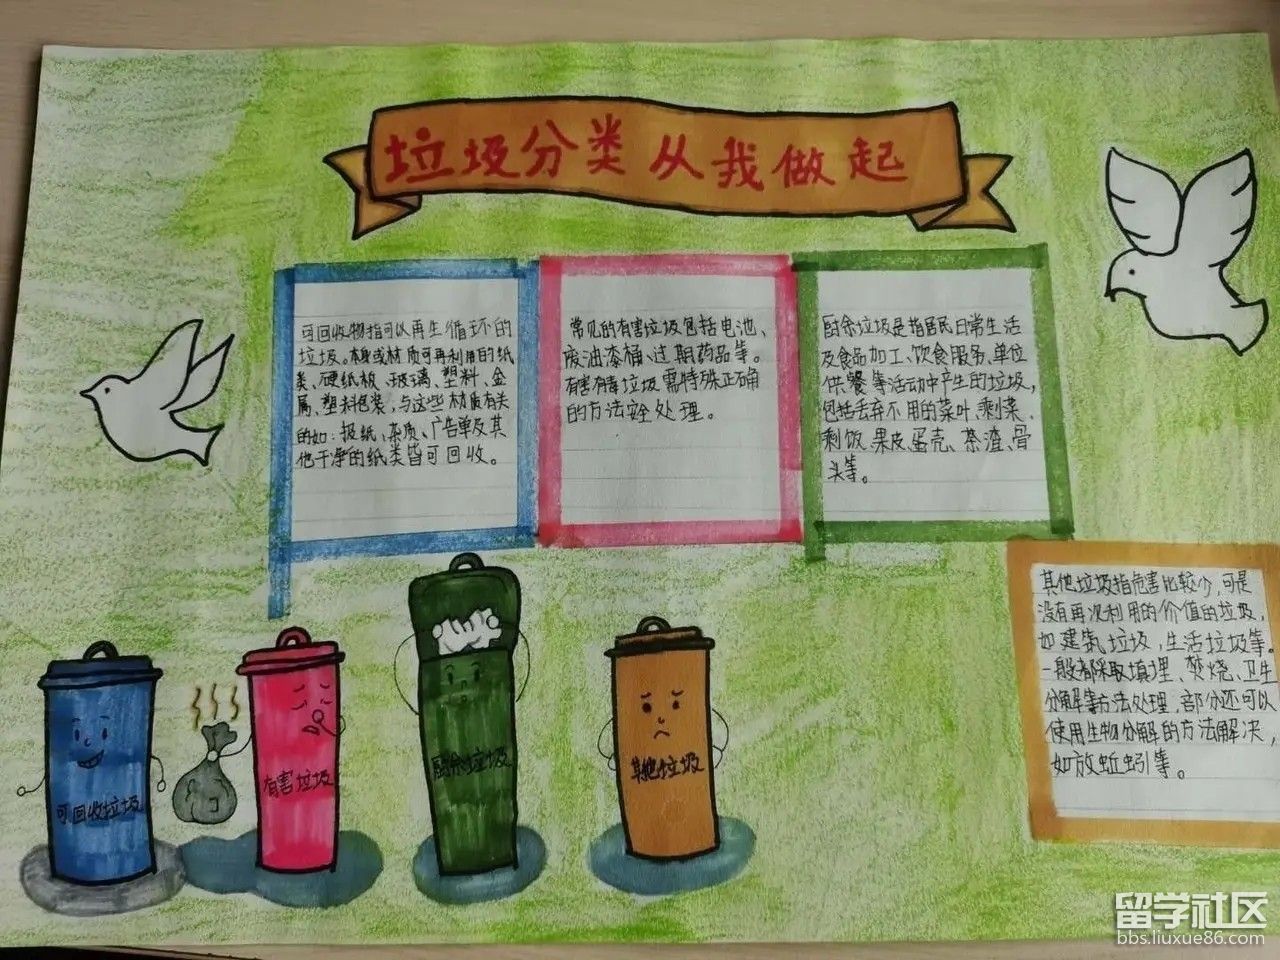 垃圾分类从我做起
可回收物指可以再生循环的
垃圾。本身或材质可再利用的纸
类、硬纸板、玻璃、塑料、金
属、塑料包装,与这些材质有关
的如:报纸、杂质、广告单及其
他干净的纸类皆可回收。
常见的有害垃圾包括电池、
废油漆桶、过期药品等。
有害有毒垃圾需特殊正确
的方法安全处理。
厨余垃圾是指居民日常生活
及食品加工、饮食服务、单位
供餐等活动中产生的垃圾,
包括丢弃不用的菜叶、剩菜、
剩饭、果皮、蛋壳、茶渣、骨
头等。
其他垃圾指危害比较少,可是
没有再次利用的价值的垃圾,
如建筑垃圾,生活垃圾等。
一般都采取填埋、焚烧、卫生
分解等方法处理,部分还可以
使用生物分解的方法解决,
如放蚯蚓等。
可回收垃圾
有害垃圾
厨余垃圾
其他垃圾
留学社区
bbs.liuxue86.com